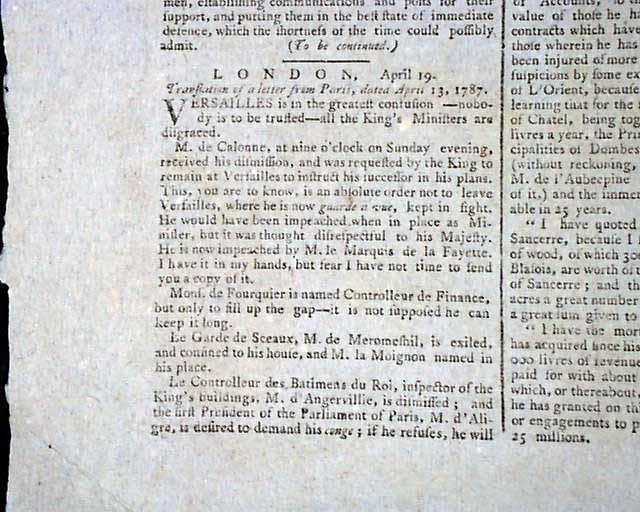 men, establishing communications and posts for their
support, and putting them in the best state of immediate
defence, which the shortness of the time could possibly
admit. (To be continued.)
LONDON, April 19.
Translation of a letter from Paris, dated April 13, 1787.
VERSAILLES is in the greatest confusion—nobo-
dy is to be trusted—all the King's Ministers are
disgraced.
M. de Calonne, at nine o'clock on Sunday evening,
received his dismission, and was requested by the King to
remain at Versailles to instruct his successor in his plans.
This, you are to know, is an absolute order not to leave
Versailles, where he is now guarde a vue, kept in sight.
He would have been impeached when in place as Mi-
nister, but it was thought disrespectful to his Majesty.
He is now impeached by M. le Marquis de la Fayette.
I have it in my hands, but fear I have not time to send
you a copy of it.
Mons. de Fourquier is named Controlleur de Finance,
but only to fill up the gap—it is not supposed he can
keep it long.
Le Garde de Sceaux, M. de Meromesnil, is exiled,
and confined to his house, and M. la Moignon named in
his place.
Le Controlleur des Batimens du Roi, inspector of the
King's buildings, M. d'Angervillie, is dismissed; and
the first President of the Parliament of Paris, M. d'Ali-
gre, is desired to demand his conge; if he refuses, he will
of Accounts, to
value of those he h
contracts which have
those wherein he has
been injured of more
suspicions by some ex
of L'Orient, because
learning that for the
of Chatel, being tog
livres a year, the Prin
cipalities of Dombes
(without reckoning,
M. de l'Aubecpine
of it,) and the immen
able in 25 years.
"I have quoted
Sancerre, because I
of wood, of which 300
Blasois, are worth
of Sancerre; and th
acres a great number
a great sum given to
"I have the mor
has acquired since his
000 livres of revenue
paid for with about
which, or thereabout,
he has granted on th
or engagements to p
25 millions.